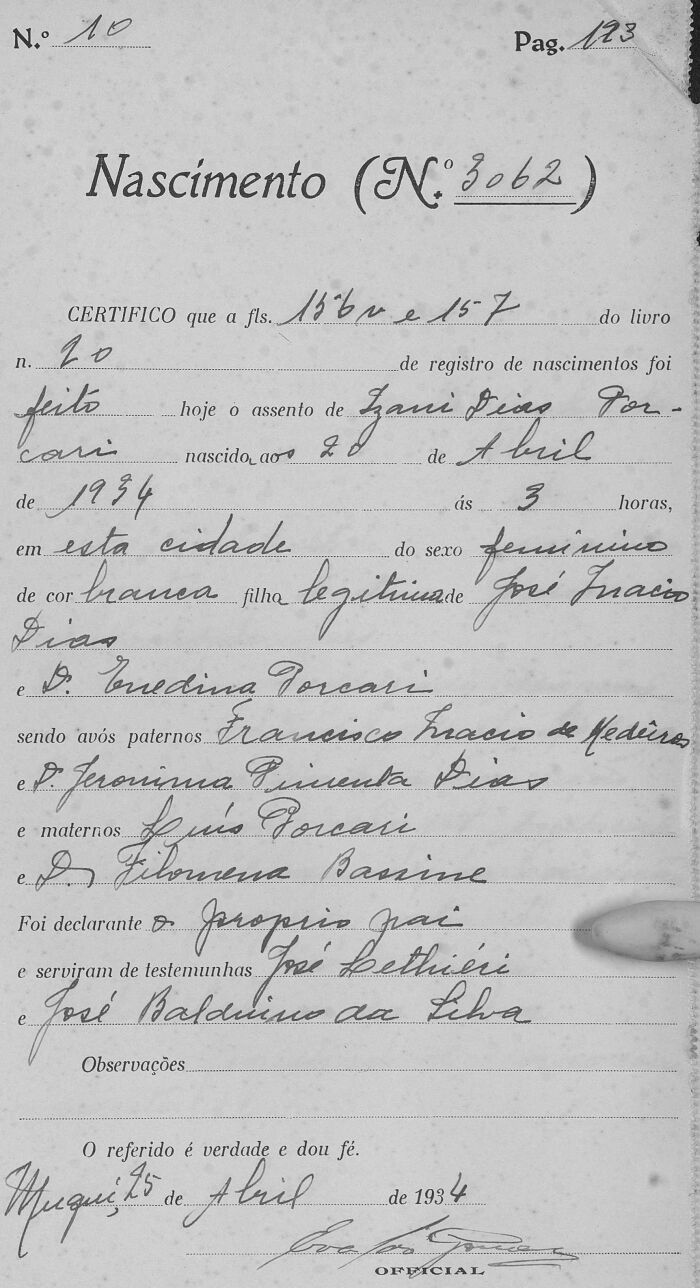 N.º 10 Pag. 193
Nascimento (N.º 3062)
CERTIFICO que a fls. 156v e 157 do livro
n. 20 de registro de nascimentos foi
feito hoje o assento de Izani Dias Por-
cari nascido, aos 20 de Abril
de 1934 ás 3 horas,
em esta cidade do sexo feminino
de cor branca filha legitima de José Inacio
Dias
e D. Enedina Porcari
sendo avós paternos Francisco Inacio de Medeiros
e D. Jeronima Pimenta Dias
e maternos Luís Porcari
e D. Filomena Bassine
Foi declarante o proprio pai
e serviram de testemunhas José Lethiéri
e José Balduino da Silva
Observações
O referido é verdade e dou fé.
Muqui, 25 de Abril de 1934
OFFICIAL